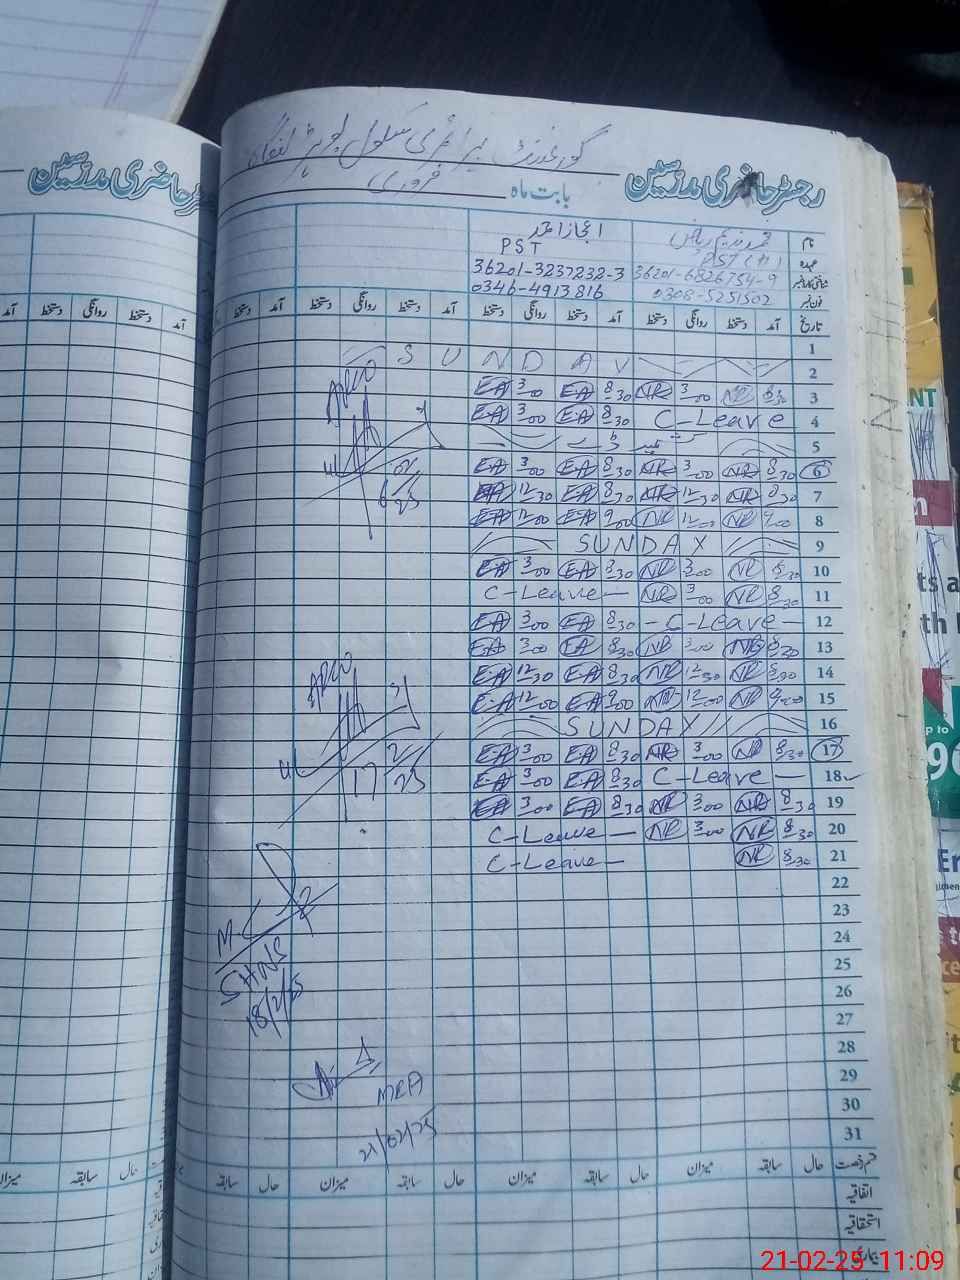 گورنمنٹ پرائمری سکول
رجسٹر حاضری مدرسین
بابت ماہ فروری
نام محمد ندیم ریاض اعجاز احمد
عہدہ PST (H) PST
شناختی کارڈ نمبر 36201-6826754-9 36201-3237232-3
فون نمبر 0308-5251502 0346-4913816
تاریخ آمد دستخط روانگی دستخط آمد دستخط روانگی دستخط آمد دستخط روانگی دستخط آمد دستخط
1
2 SUNDAY
3 EA 3:00 EA 8:30 NR 3:00 NR 8:30
4 EA 3:00 EA 8:30 C-Leave
5 کشمیر ڈے
6 EA 3:00 EA 8:30 NR 3:00 NR 8:30
7 EA 12:30 EA 8:30 NR 12:30 NR 8:30
8 EA 12:00 EA 9:00 NR 12:00 NR 9:00
9 SUNDAY
10 EA 3:00 EA 8:30 NR 3:00 NR 8:30
11 C-Leave NR 3:00 NR 8:30
12 EA 3:00 EA 8:30 C-Leave
13 EA 3:00 EA 8:30 NR 3:00 NR 8:30
14 EA 12:30 EA 8:30 NR 12:30 NR 8:30
15 EA 12:00 EA 9:00 NR 12:00 NR 9:00
16 SUNDAY
17 EA 3:00 EA 8:30 NR 3:00 NR 8:30
18 EA 3:00 EA 8:30 C-Leave
19 EA 3:00 EA 8:30 NR 3:00 NR 8:30
20 C-Leave NR 3:00 NR 8:30
21 C-Leave NR 8:30
22
23
24
25
26
27
28
29
30
31
6/02/25
17/2/25
SHNS
18/2/25
MEA
21/02/25
قسم رخصت حال سابقہ میزان حال سابقہ میزان حال سابقہ میزان حال سابقہ
اتفاقیہ
استحقاقیہ
21-02-25 11:09